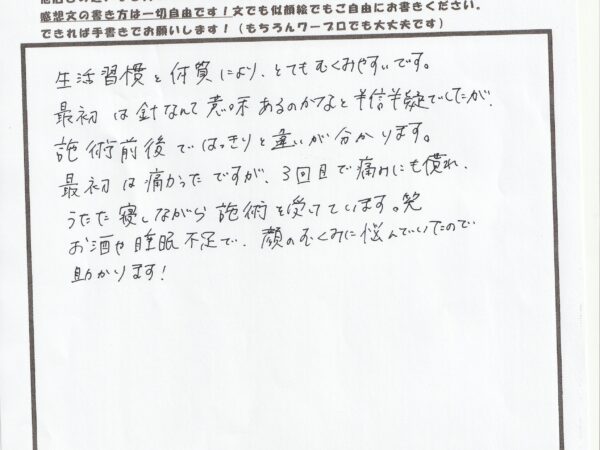 感想文の書き方は一切自由です！文でも似顔絵でもご自由にお書きください。
できれば手書きでお願いします！（もちろんワープロでも大丈夫です）
生活習慣と体質により、とてもむくみやすいです。
最初は針なんて意味あるのかなと半信半疑でしたが、
施術前後ではっきりと違いが分かります。
最初は痛かったですが、3回目で痛みにも慣れ、
うたた寝しながら施術を受けています。笑
お酒や睡眠不足で、顔のむくみに悩んでいたので
助かります！